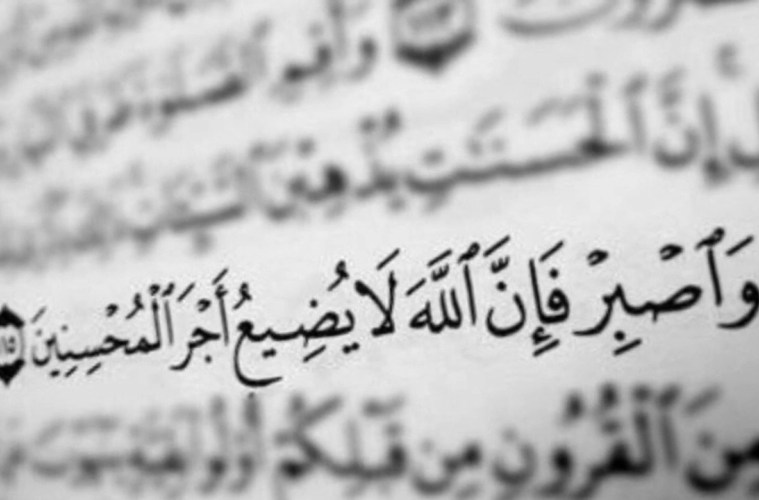 وَأَقِمِ ٱلصَّلَوٰةَ طَرَفَىِ
إِنَّ ٱلْحَسَنَٰتِ يُذْهِبْنَ ٱلسَّيِّـَٔاتِ
وَٱصْبِرْ فَإِنَّ ٱللَّهَ لَا يُضِيعُ أَجْرَ ٱلْمُحْسِنِينَ ١١٥
مِنَ ٱلْقُرُونِ مِن قَبْلِكُمْ أُو۟لُوا۟ بَقِيَّةٍ